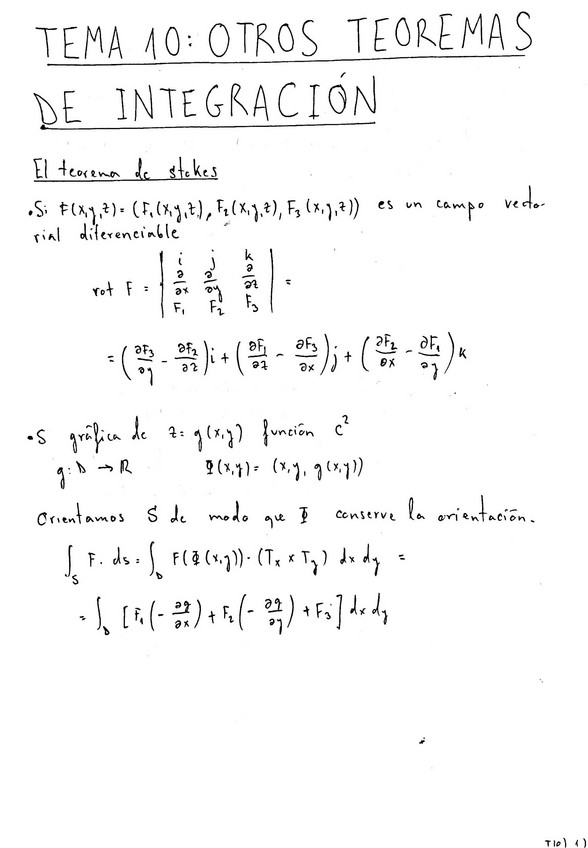 TEMA 10: OTROS TEOREMAS
DE INTEGRACIÓN
El teorema de stokes
• Si F(x,y,z) = (F₁(x,y,z), F₂(x,y,z), F₃(x,y,z)) es un campo vecto-
rial diferenciable
rot F = | i j k ; ∂/∂x ∂/∂y ∂/∂z ; F₁ F₂ F₃ | =
= (∂F₃/∂y - ∂F₂/∂z)i + (∂F₁/∂z - ∂F₃/∂x)j + (∂F₂/∂x - ∂F₁/∂y)k
• S gráfica de z = g(x,y) función C²
g: D → ℝ Φ(x,y) = (x, y, g(x,y))
Orientamos S de modo que Φ conserve la orientación.
∫_S F. ds = ∫_D F(Φ(x,y)) · (Tₓ × T_y) dx dy =
= ∫_D [F₁(-∂g/∂x) + F₂(-∂g/∂y) + F₃] dx dy
T10) 1)